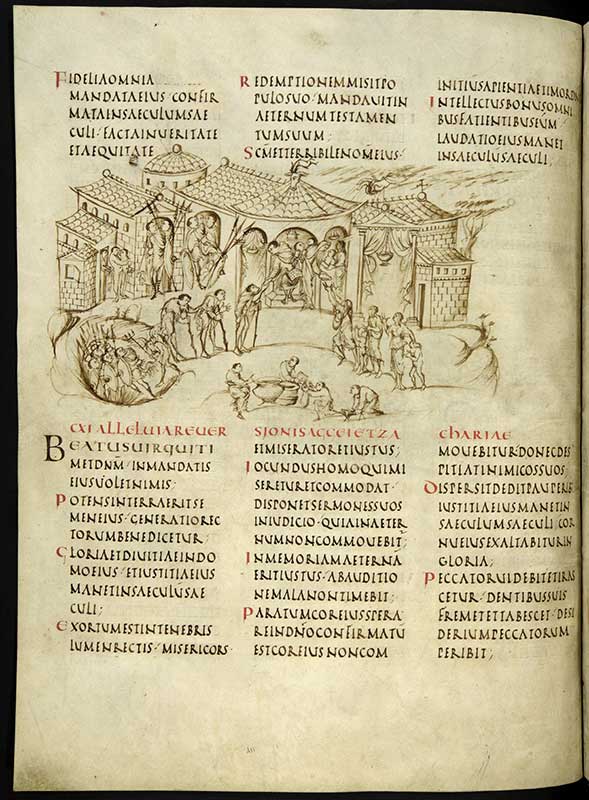 FIDELIA OMNIA
MANDATA EIUS · CONFIR
MATA IN SAECULUM SAE
CULI · FACTA IN UERITATE
ET AEQUITATE
REDEMPTIONEM MISIT PO
PULO SUO · MANDAUIT IN
AETERNUM TESTAMEN
TUM SUUM;
SC̄M ET TERRIBILE NOM̄ EIUS ·
INITIU SAPIENTIAE TIMOR DN̄I
INTELLECTUS BONUS OMNI
BUS FACIENTIBUS EUM
LAUDATIO EIUS MANET
IN SAECULŪ SAECULI;
CXI ALLELUIA REUER SIONIS AGGEI ET ZA CHARIAE
BEATUS UIR QUI TI
MET DNM̄ · IN MANDATIS
EIUS UOLET NIMIS;
POTENS IN TERRA ERIT SE
MEN EIUS · GENERATIO REC
TORUM BENEDICETUR;
GLORIA ET DIUITIAE IN DO
MO EIUS · ET IUSTITIA EIUS
MANET IN SAECULŪ SAE
CULI;
EXORTUM EST IN TENEBRIS
LUMEN RECTIS · MISERICORS
ET MISERATOR ET IUSTUS;
IOCUNDUS HOMO QUI MI
SERETUR ET COMMODAT ·
DISPONET SERMONES SUOS
IN IUDICIO · QUIA IN AETER
NUM NON COMMOUEBIT;
IN MEMORIAM AETERNĀ
ERIT IUSTUS · AB AUDITIO
NE MALA NON TIMEBIT;
PARATUM COR EIUS SPERA
RE IN DN̄O CONFIRMATŪ
EST COR EIUS NON COM
MOUEBITUR DONEC DES
PICIAT INIMICOS SUOS
DISPERSIT DEDIT PAUPERIB;
IUSTITIA EIUS MANET IN
SAECULUM SAECULI COR
NU EIUS EXALTABITUR IN
GLORIA;
PECCATOR UIDEBIT ET IRAS
CETUR · DENTIBUS SUIS
FREMET ET TABESCET · DESI
DERIUM PECCATORUM
PERIBIT;